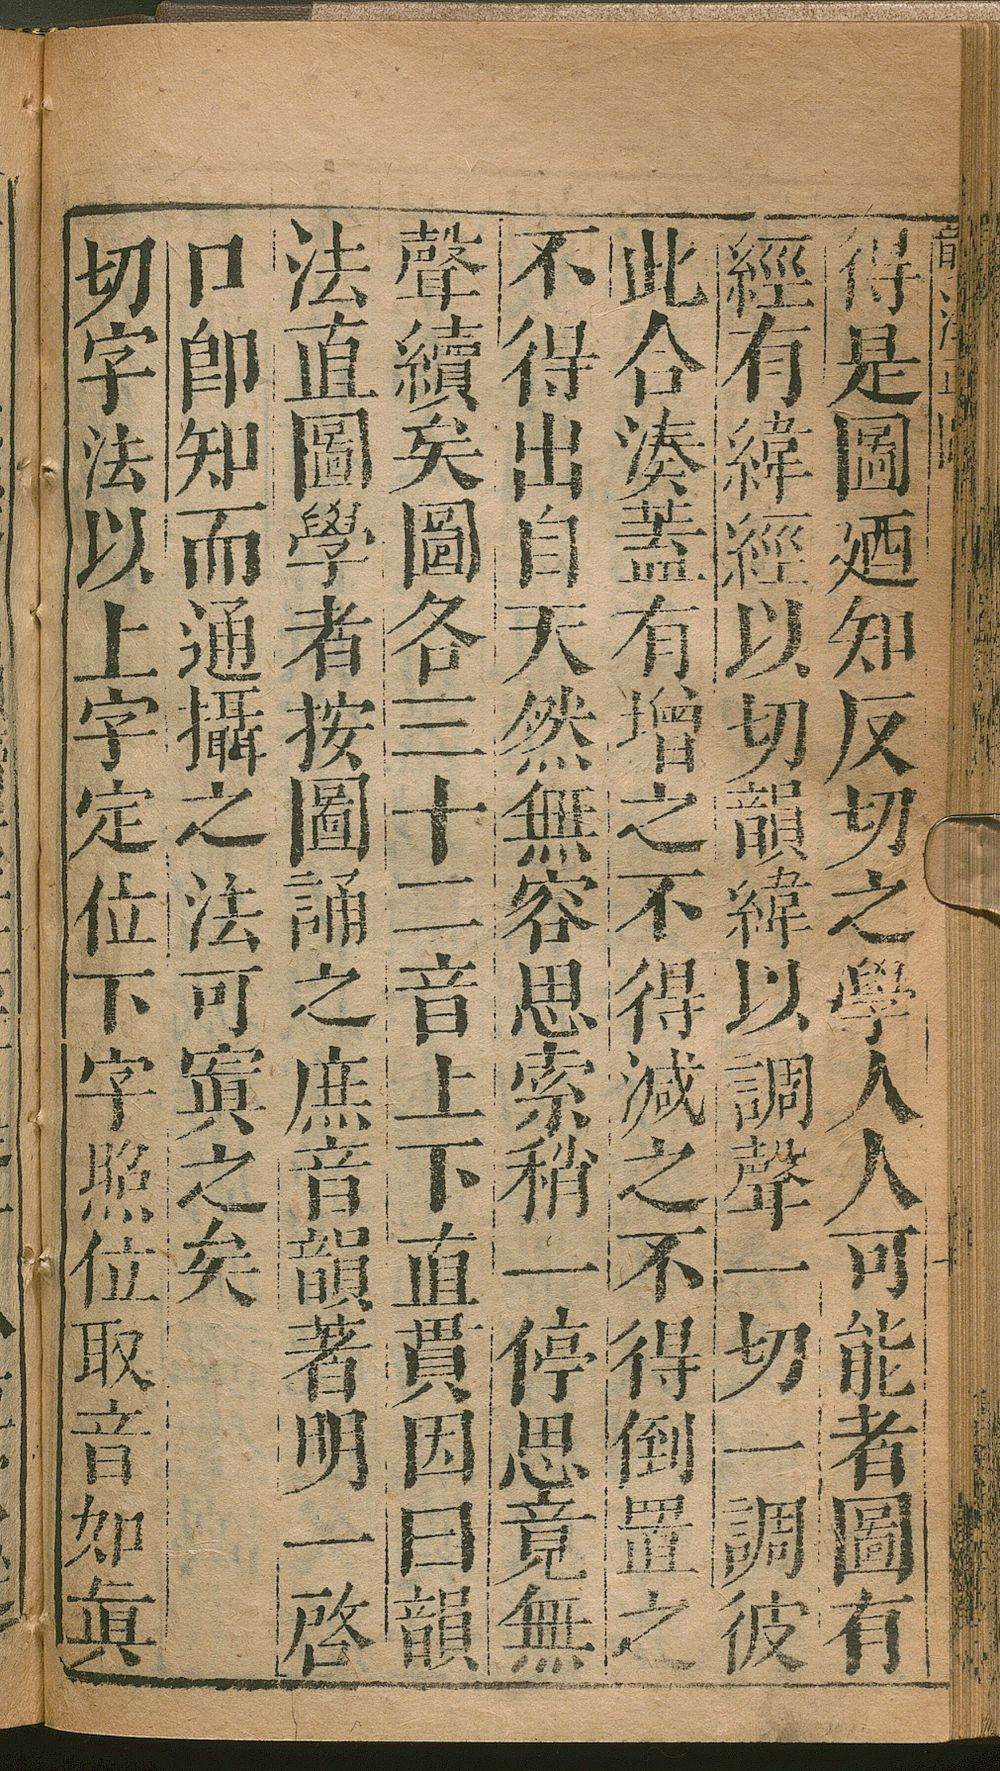 得是圖廼知反切之學人人可能者圖有
經有緯經以切韻緯以調聲一切一調彼
此合湊蓋有增之不得減之不得倒置之
不得出自天然無容思索稍一停思竟無
聲續矣圖各三十二音上下直貫因曰韻
法直圖學者按圖誦之庶音韻著明一啓
口卽知而通攝之法可寘之矣
切字法以上字定位下字照位取音如眞